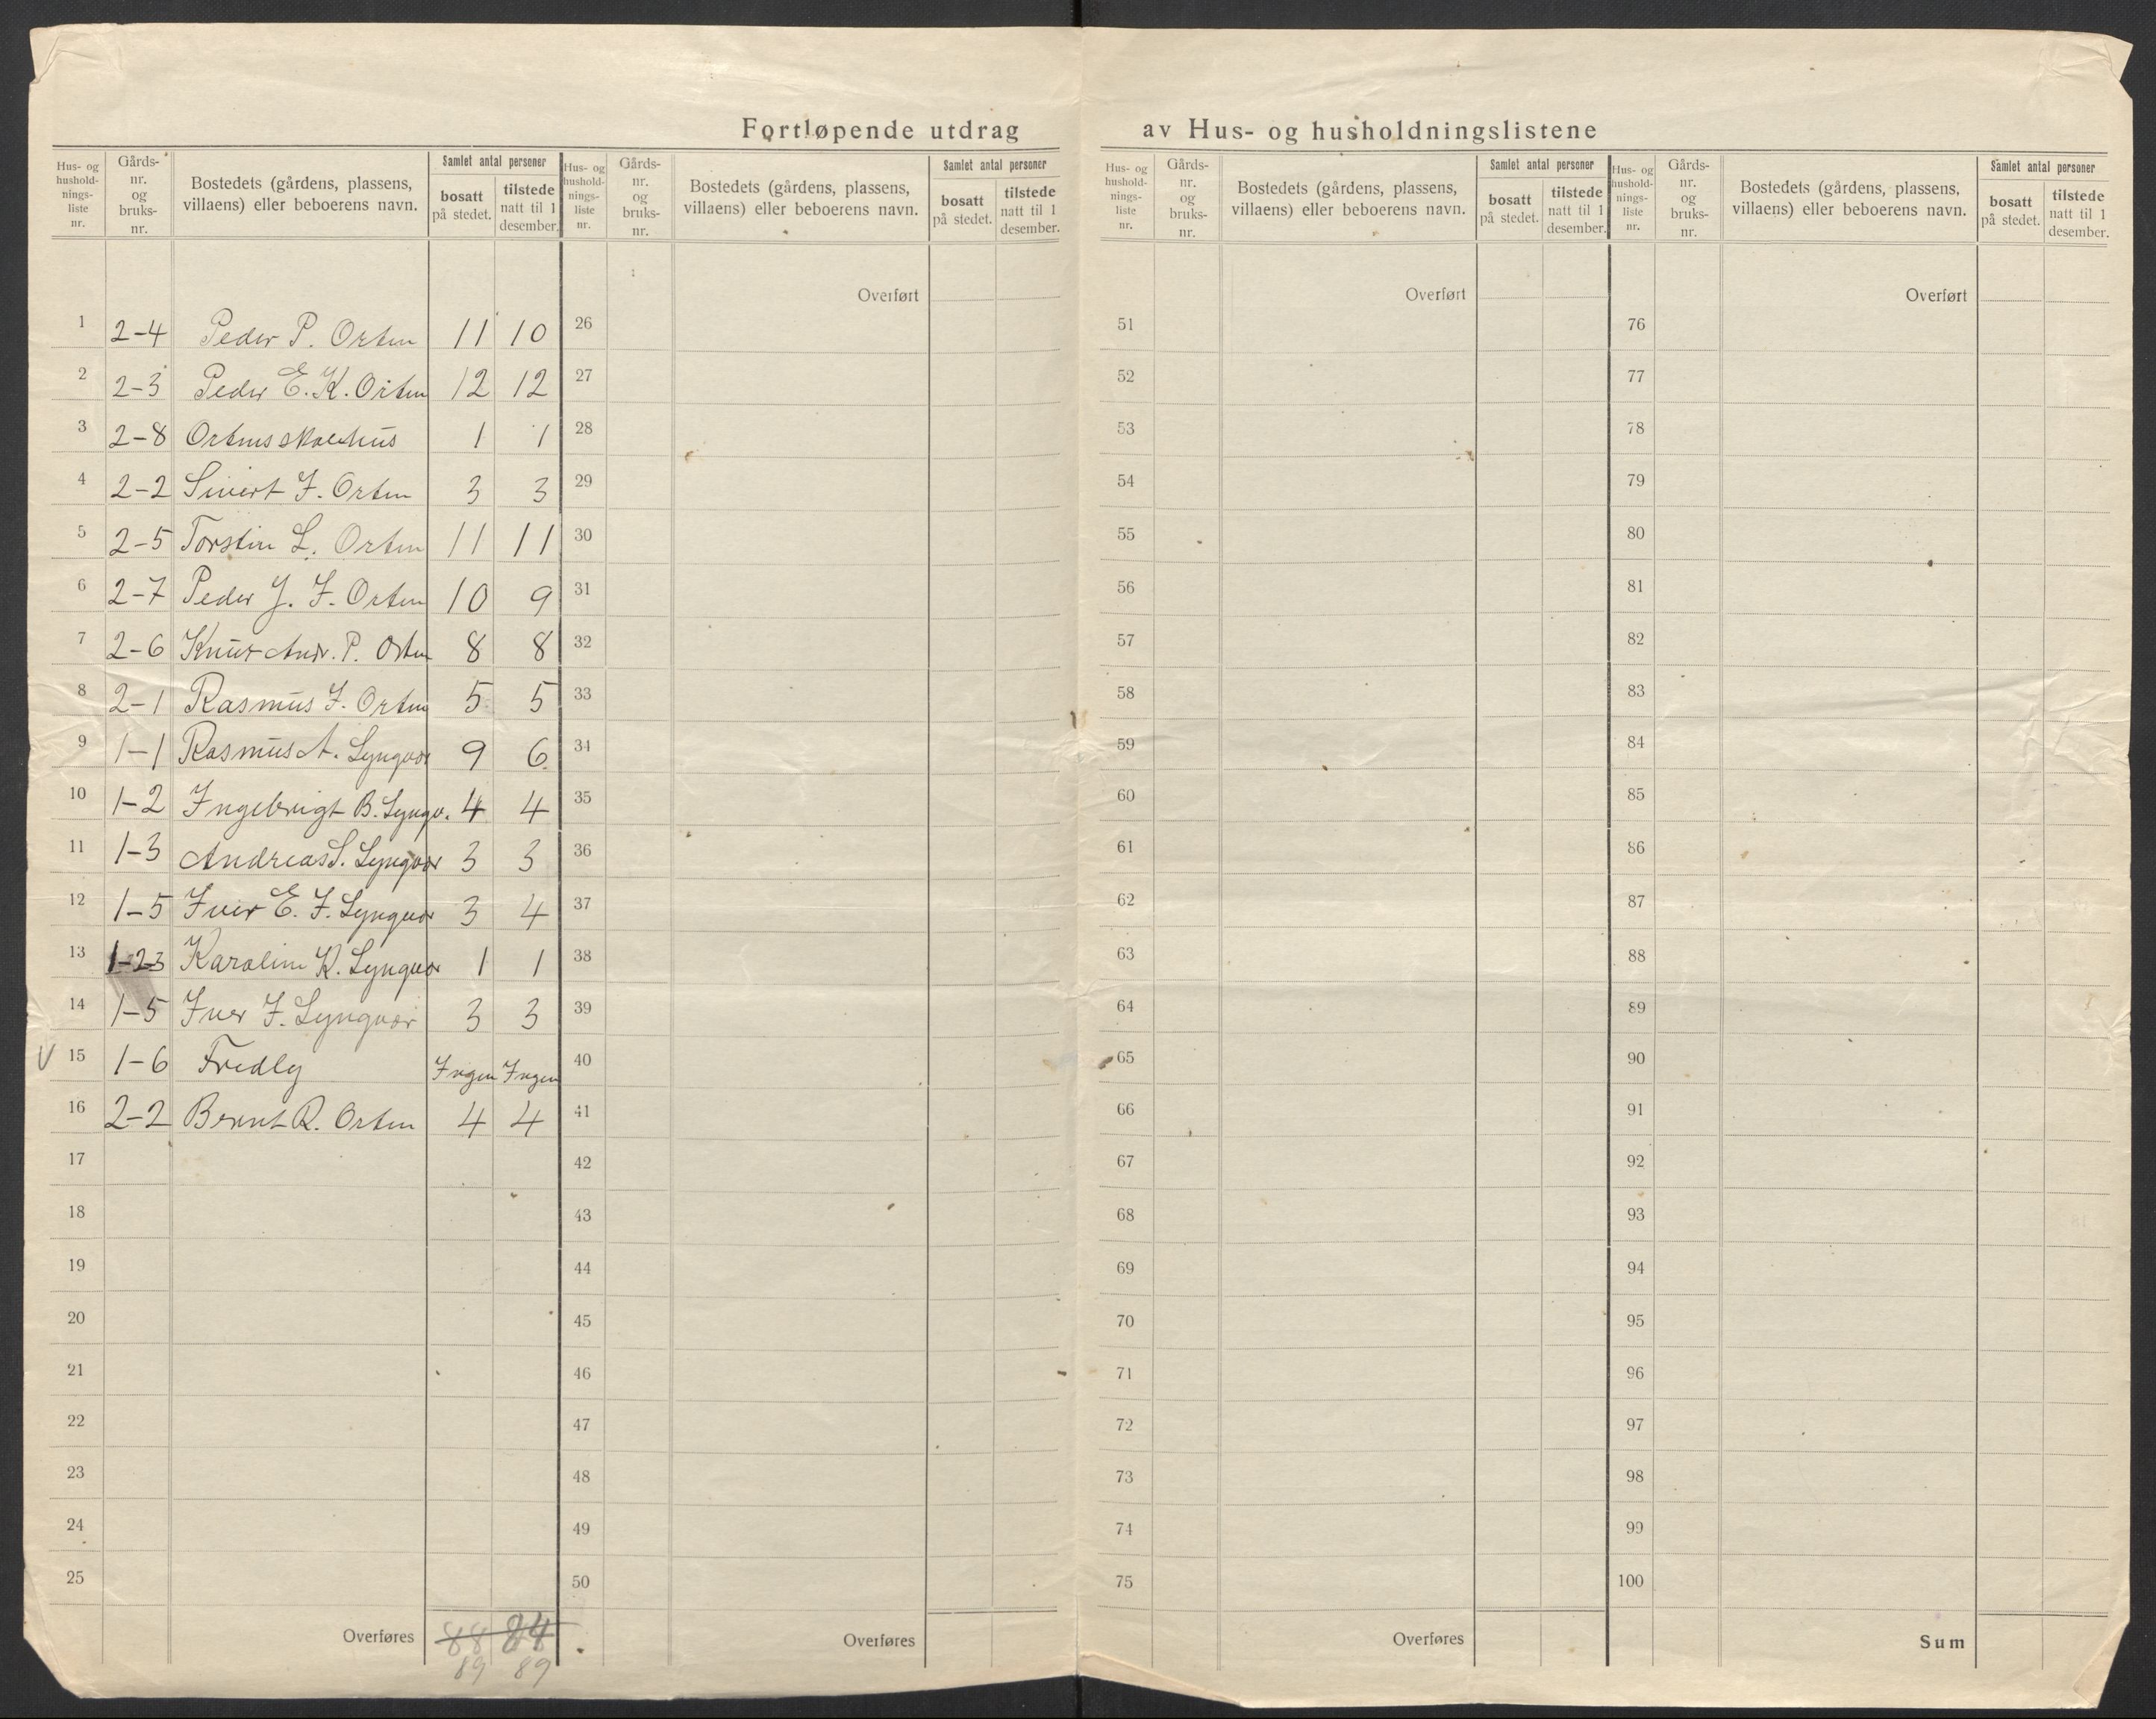 Fortløpende utdrag av Hus- og husholdningslistene
Hus- og husholdnings-liste nr. Gårds-nr. og bruks-nr. Bostedets (gårdens, plassens, villaens) eller beboerens navn. Samlet antal personer bosatt på stedet. tilstede natt til 1 desember.
Hus- og husholdnings-liste nr. Gårds-nr. og bruks-nr. Bostedets (gårdens, plassens, villaens) eller beboerens navn. Samlet antal personer bosatt på stedet. tilstede natt til 1 desember.
Hus- og husholdnings-liste nr. Gårds-nr. og bruks-nr. Bostedets (gårdens, plassens, villaens) eller beboerens navn. Samlet antal personer bosatt på stedet. tilstede natt til 1 desember.
Hus- og husholdnings-liste nr. Gårds-nr. og bruks-nr. Bostedets (gårdens, plassens, villaens) eller beboerens navn. Samlet antal personer bosatt på stedet. tilstede natt til 1 desember.
Overført Overført Overført
1 2-4 Peder P. Orten 11 10 26 51 76
2 2-3 Peder E. K. Orten 12 12 27 52 77
3 2-8 Ortens skolehus 1 1 28 53 78
4 2-2 Sivert I. Orten 3 3 29 54 79
5 2-5 Torstin L. Orten 11 11 30 55 80
6 2-7 Peder J. I. Orten 10 9 31 56 81
7 2-6 Knut Andr. P. Orten 8 8 32 57 82
8 2-1 Rasmus I. Orten 5 5 33 58 83
9 1-1 Rasmus A. Lyngvær 9 6 34 59 84
10 1-2 Ingebrigt B. Lyngv. 4 4 35 60 85
11 1-3 Andreas S. Lyngvær 3 3 36 61 86
12 1-5 Iver E. I. Lyngvær 3 4 37 62 87
13 1-23 Karoline K. Lyngvær 1 1 38 63 88
14 1-5 Iver I. Lyngvær 3 3 39 64 89
V 15 1-6 Fredly Ingen Ingen 40 65 90
16 2-2 Bernt R. Orten 4 4 41 66 91
17 42 67 92
18 43 68 93
19 44 69 94
20 45 70 95
21 46 71 96
22 47 72 97
23 48 73 98
24 49 74 99
25 50 75 100
Overføres 88 84 Overføres Overføres Sum
89 89